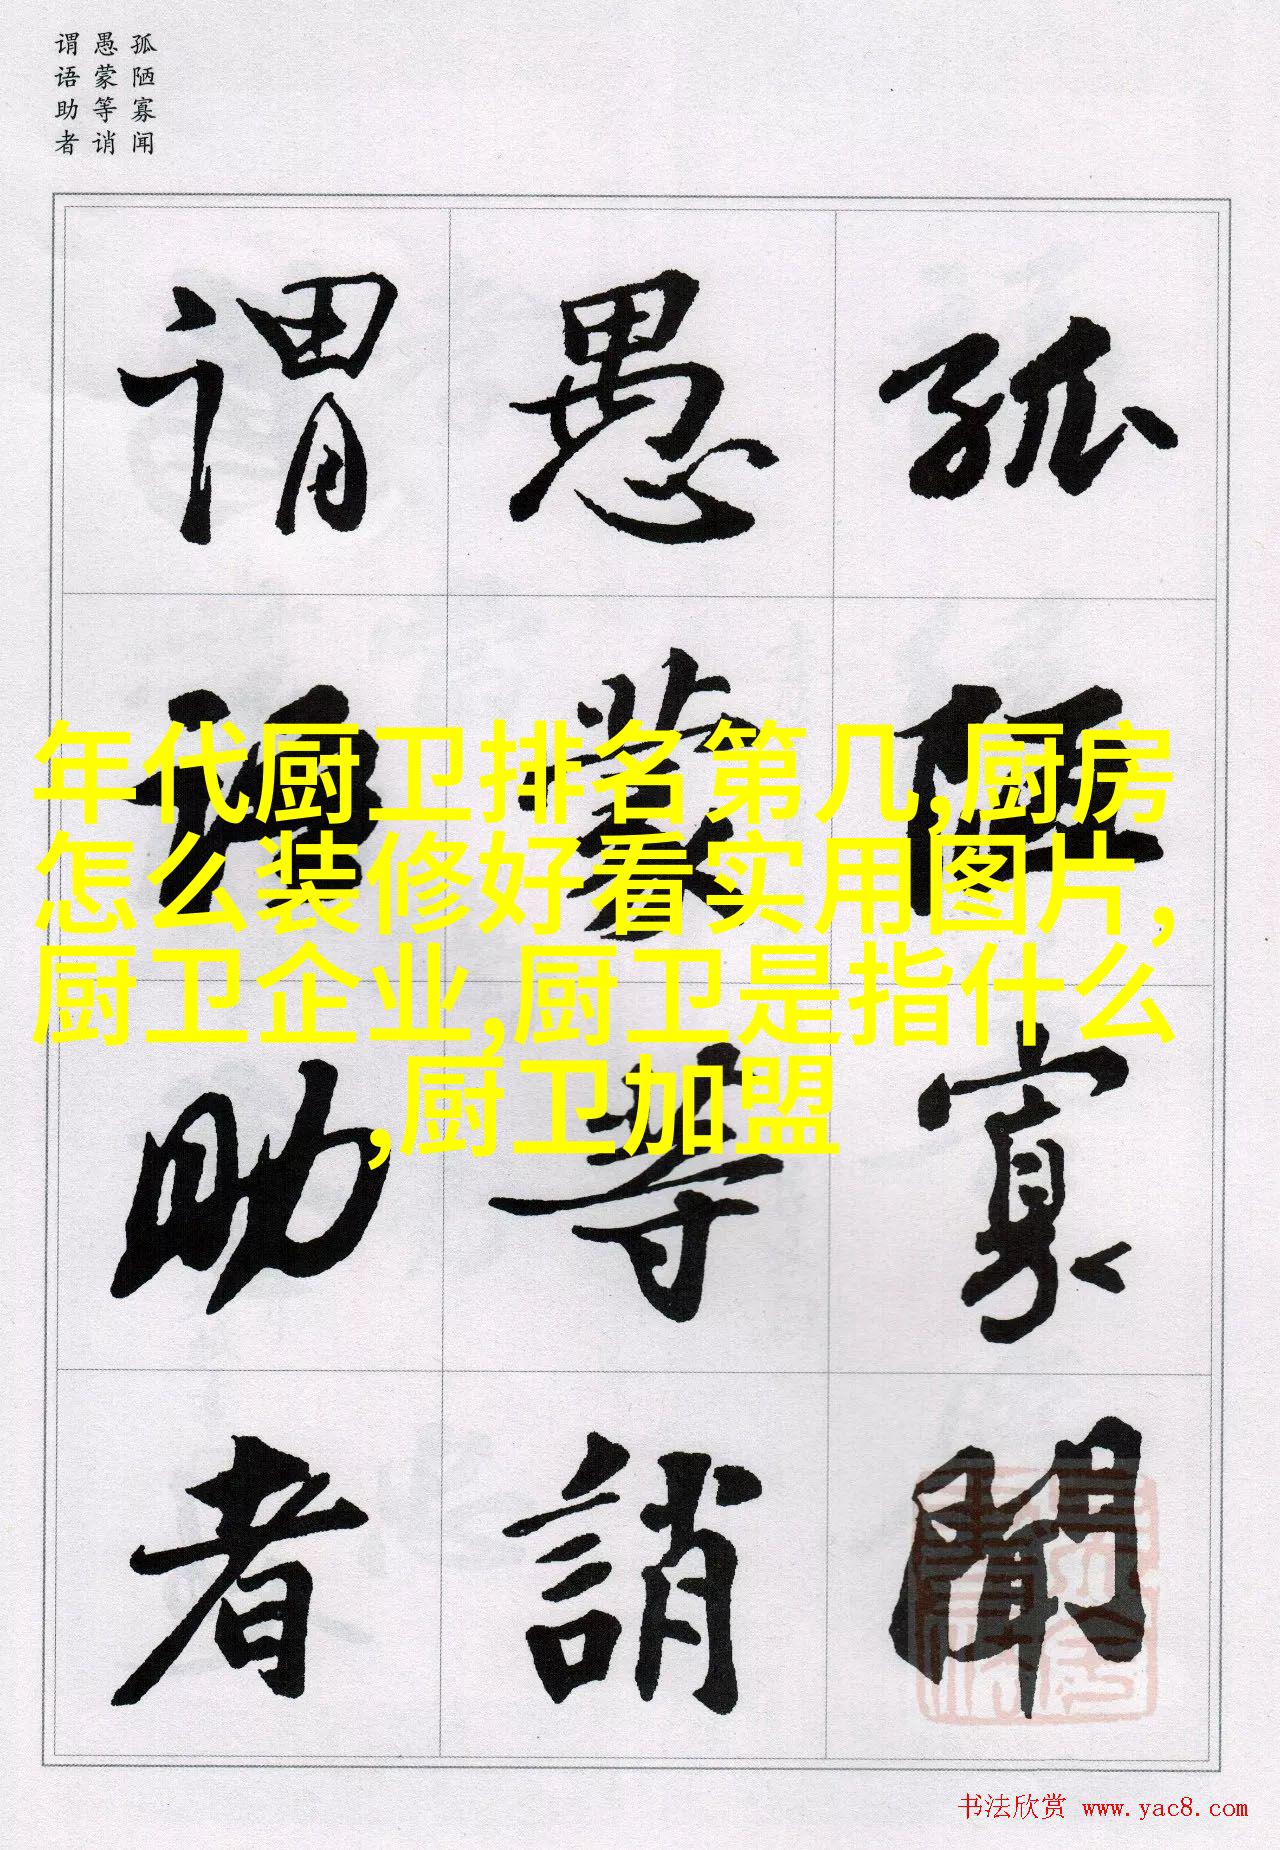 孤陋寡闻
愚蒙等诮
谓语助者
孤陋寡闻
愚蒙等誚
谓语助者
年代厨卫排名第几,厨房
怎么装修好看实用图片,
厨卫企业,厨卫是指什么
,厨卫加盟
书法欣赏 www.yac8.com